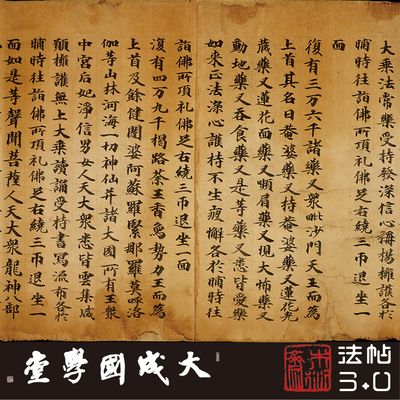 大乘法常樂受持發深信心稱揚擁護各於
晡時往詣佛所頂礼佛足右繞三帀退坐一
面
復有三万六千諸藥叉衆毗沙門天王而爲
上首其名曰菴婆藥叉持菴婆藥叉蓮花光
藏藥叉蓮花面藥叉顰眉藥叉現大怖藥叉
動地藥叉吞食藥叉是等藥叉悉皆愛樂
如來正法深心護持不生疲懈各於晡時往
詣佛所頂礼佛足右繞三帀退坐一面
復有四万九千揭路荼王香烏勢力王而爲
上首及餘健闥婆阿蘇羅緊那羅莫呼洛
伽等山林河海一切神仙并諸大國所有王衆
中宮后妃淨信男女人天大衆悉皆雲集咸
願擁護無上大乘讀誦受持書寫流布各於
晡時往詣佛所頂礼佛足右繞三帀退坐一
面如是等聲聞菩薩人天大衆龍神八部
大成國學堂
法帖
3.0